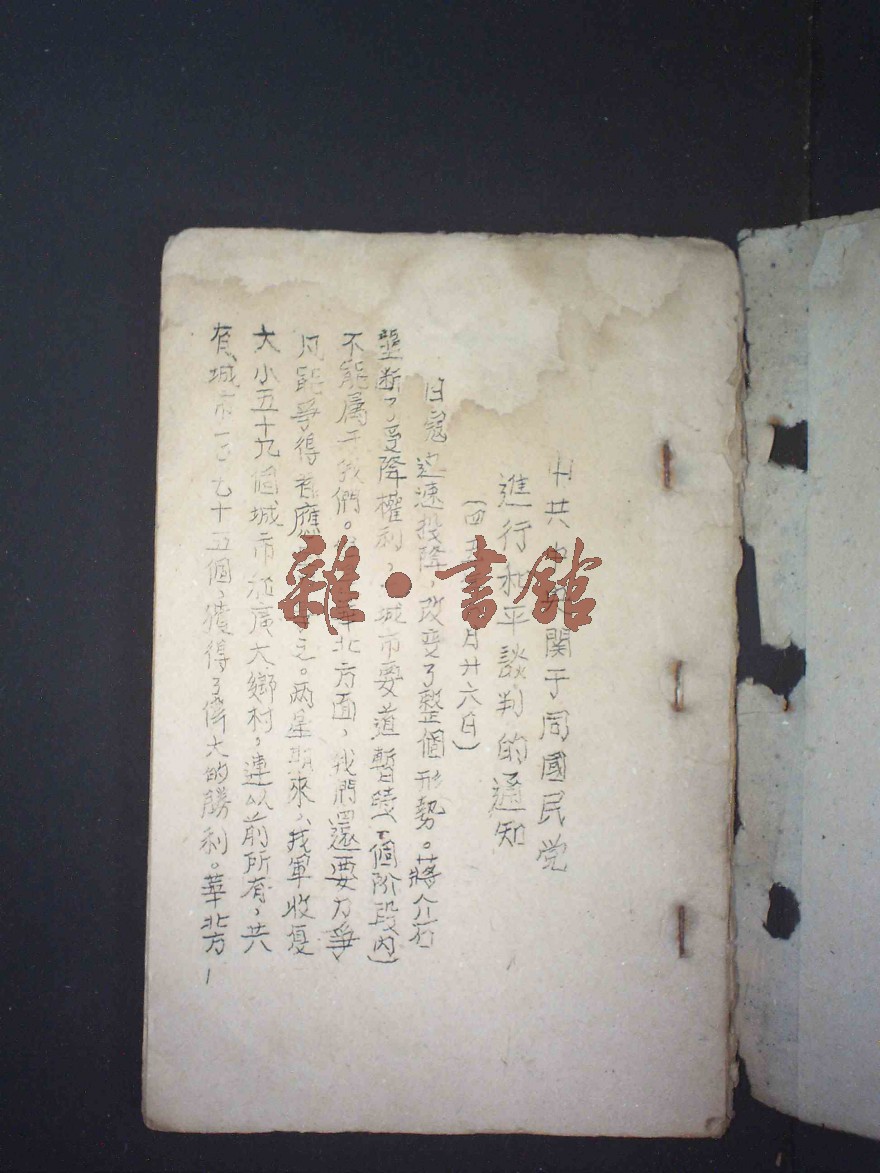 中共中央關于同國民党
進行和平談判的通知
(四五 月廿六日)
日寇迅速投降,改变了整個形势。蔣介石
壟断了受降權利, 城市要道暫時(一個阶段内)
不能属于我們。 華北方面,我們還要力爭
凡能爭得者應 之。两星期來,我軍收復
大小五十九個城市和廣大鄉村,連以前所有,共
有城市一百七十五個,獲得了偉大的勝利。華北方
1
雜·書館